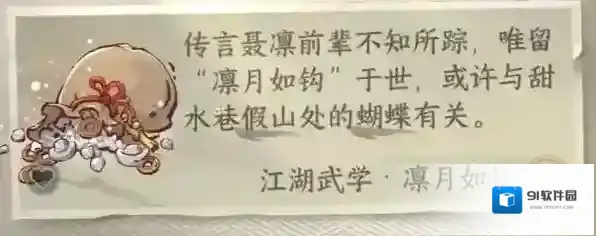 传言聂凛前辈不知所踪，唯留
“凛月如钩”于世，或许与甜
水巷假山处的蝴蝶有关。
江湖武学·凛月如
91软件园